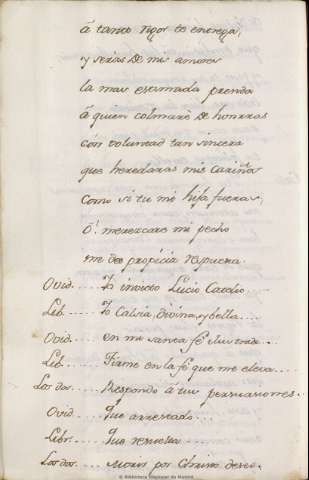 á tanto rigor te entrega,
y serias de mis amores
la mas estimada prenda
á quien colmaré de honrras
con voluntad tan sincera
que heredaras mis cariños
como si tu mi hija fueras;
ó! merezcare mi pecho
me des propicia respuesta.
Ovid. .... Yo invicto Lucio Catelio ...
Lib. .... Yo Calsia divina, y bella ....
Ovid. .... en mi santa fé ilustrada ...
Lib. .... Firme en la fé que me eleva ....
Los dos .... Respondo á tus persuasiones ...
Ovid. .... Que arrestado ...
Libr. .... Que resuelta ...
Los dos .... Morir por Christo deseo.
© Biblioteca Regional de Madrid